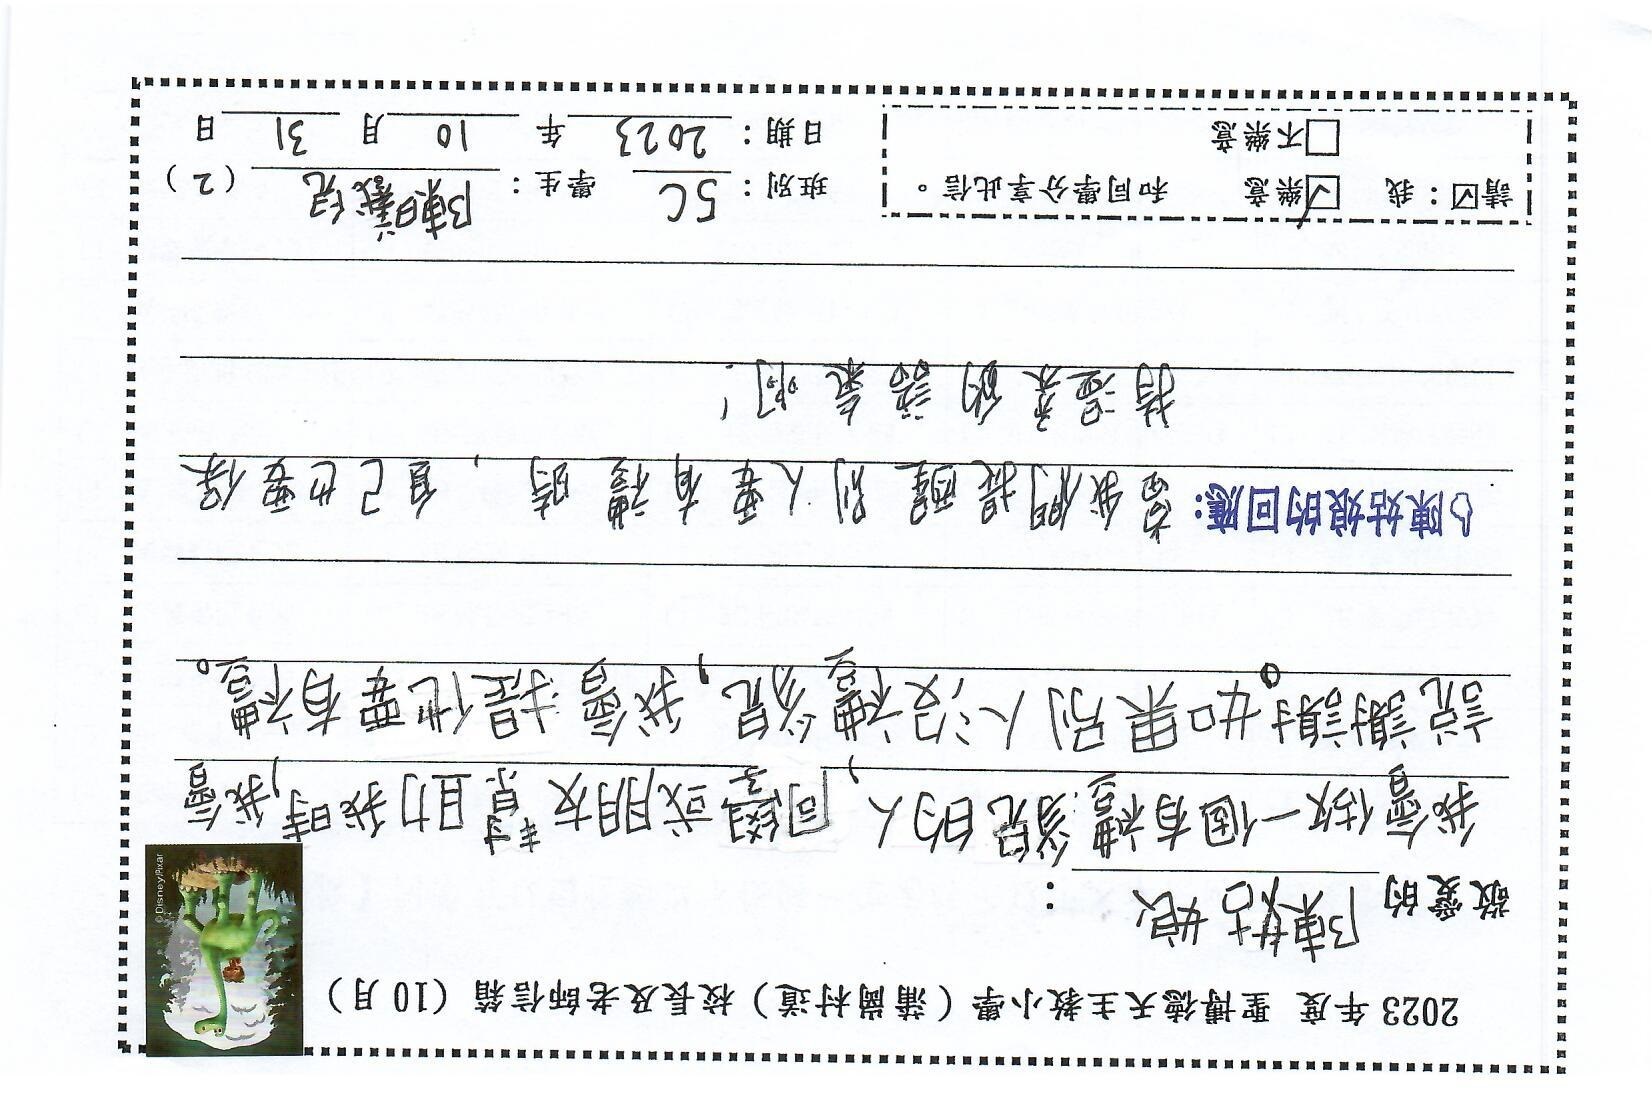 2023 年度 聖博德天主教小學（蒲崗村道）校長及老師信箱（10 月）
©Disney/Pixar
敬愛的 陳姑娘 ：
我會做一個有禮貌的人，同學或朋友幫助我時，我會
說謝謝。如果別人沒禮貌，我會提他要有禮。
陳姑娘的回應: 當我們提醒別人要有禮時，自己也要保
持溫柔的語氣啊！
請☑：我 ☑樂意 和同學分享此信。
□不樂意
班別： 5C 學生： 陳 兒 （ 2 ）
日期： 2023 年 10 月 31 日